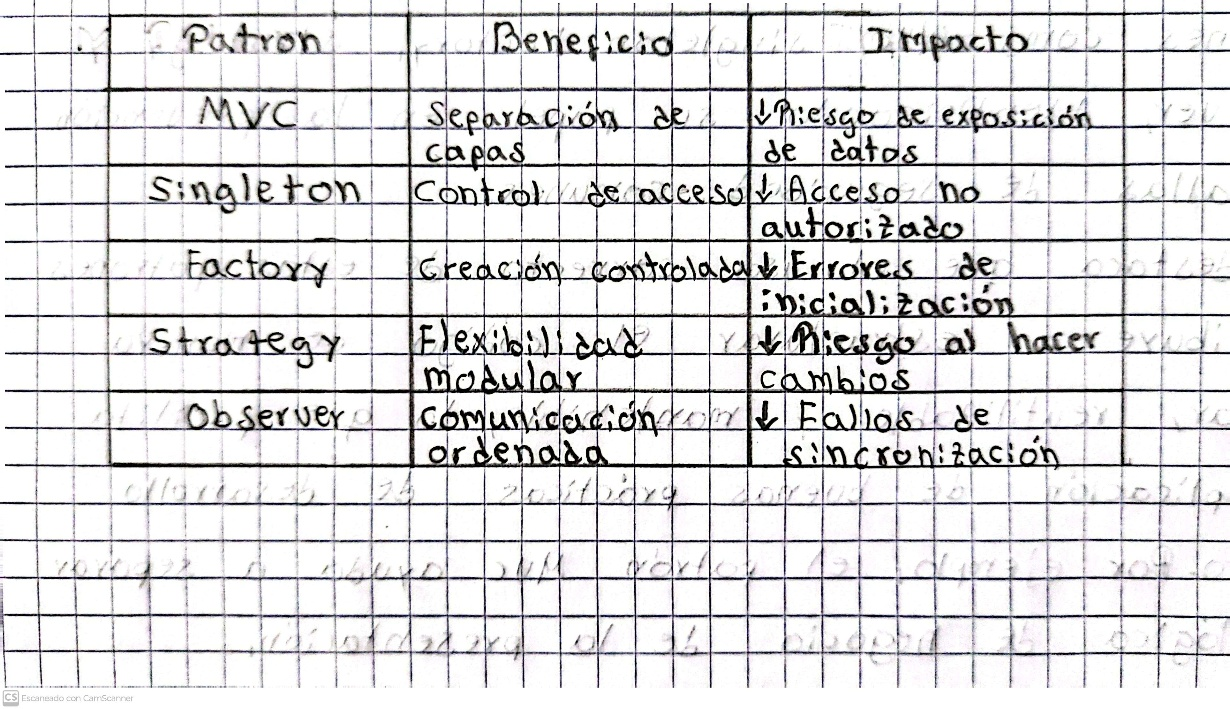 Patron Beneficio Impacto
MVC Separación de capas ↓ Riesgo de exposición de datos
Singleton Control de acceso ↓ Acceso no autorizado
Factory Creación controlada ↓ Errores de inicialización
Strategy Flexibilidad modular ↓ Riesgo al hacer cambios
Observer Comunicación ordenada ↓ Fallos de sincronización
CS Escaneado con CamScanner